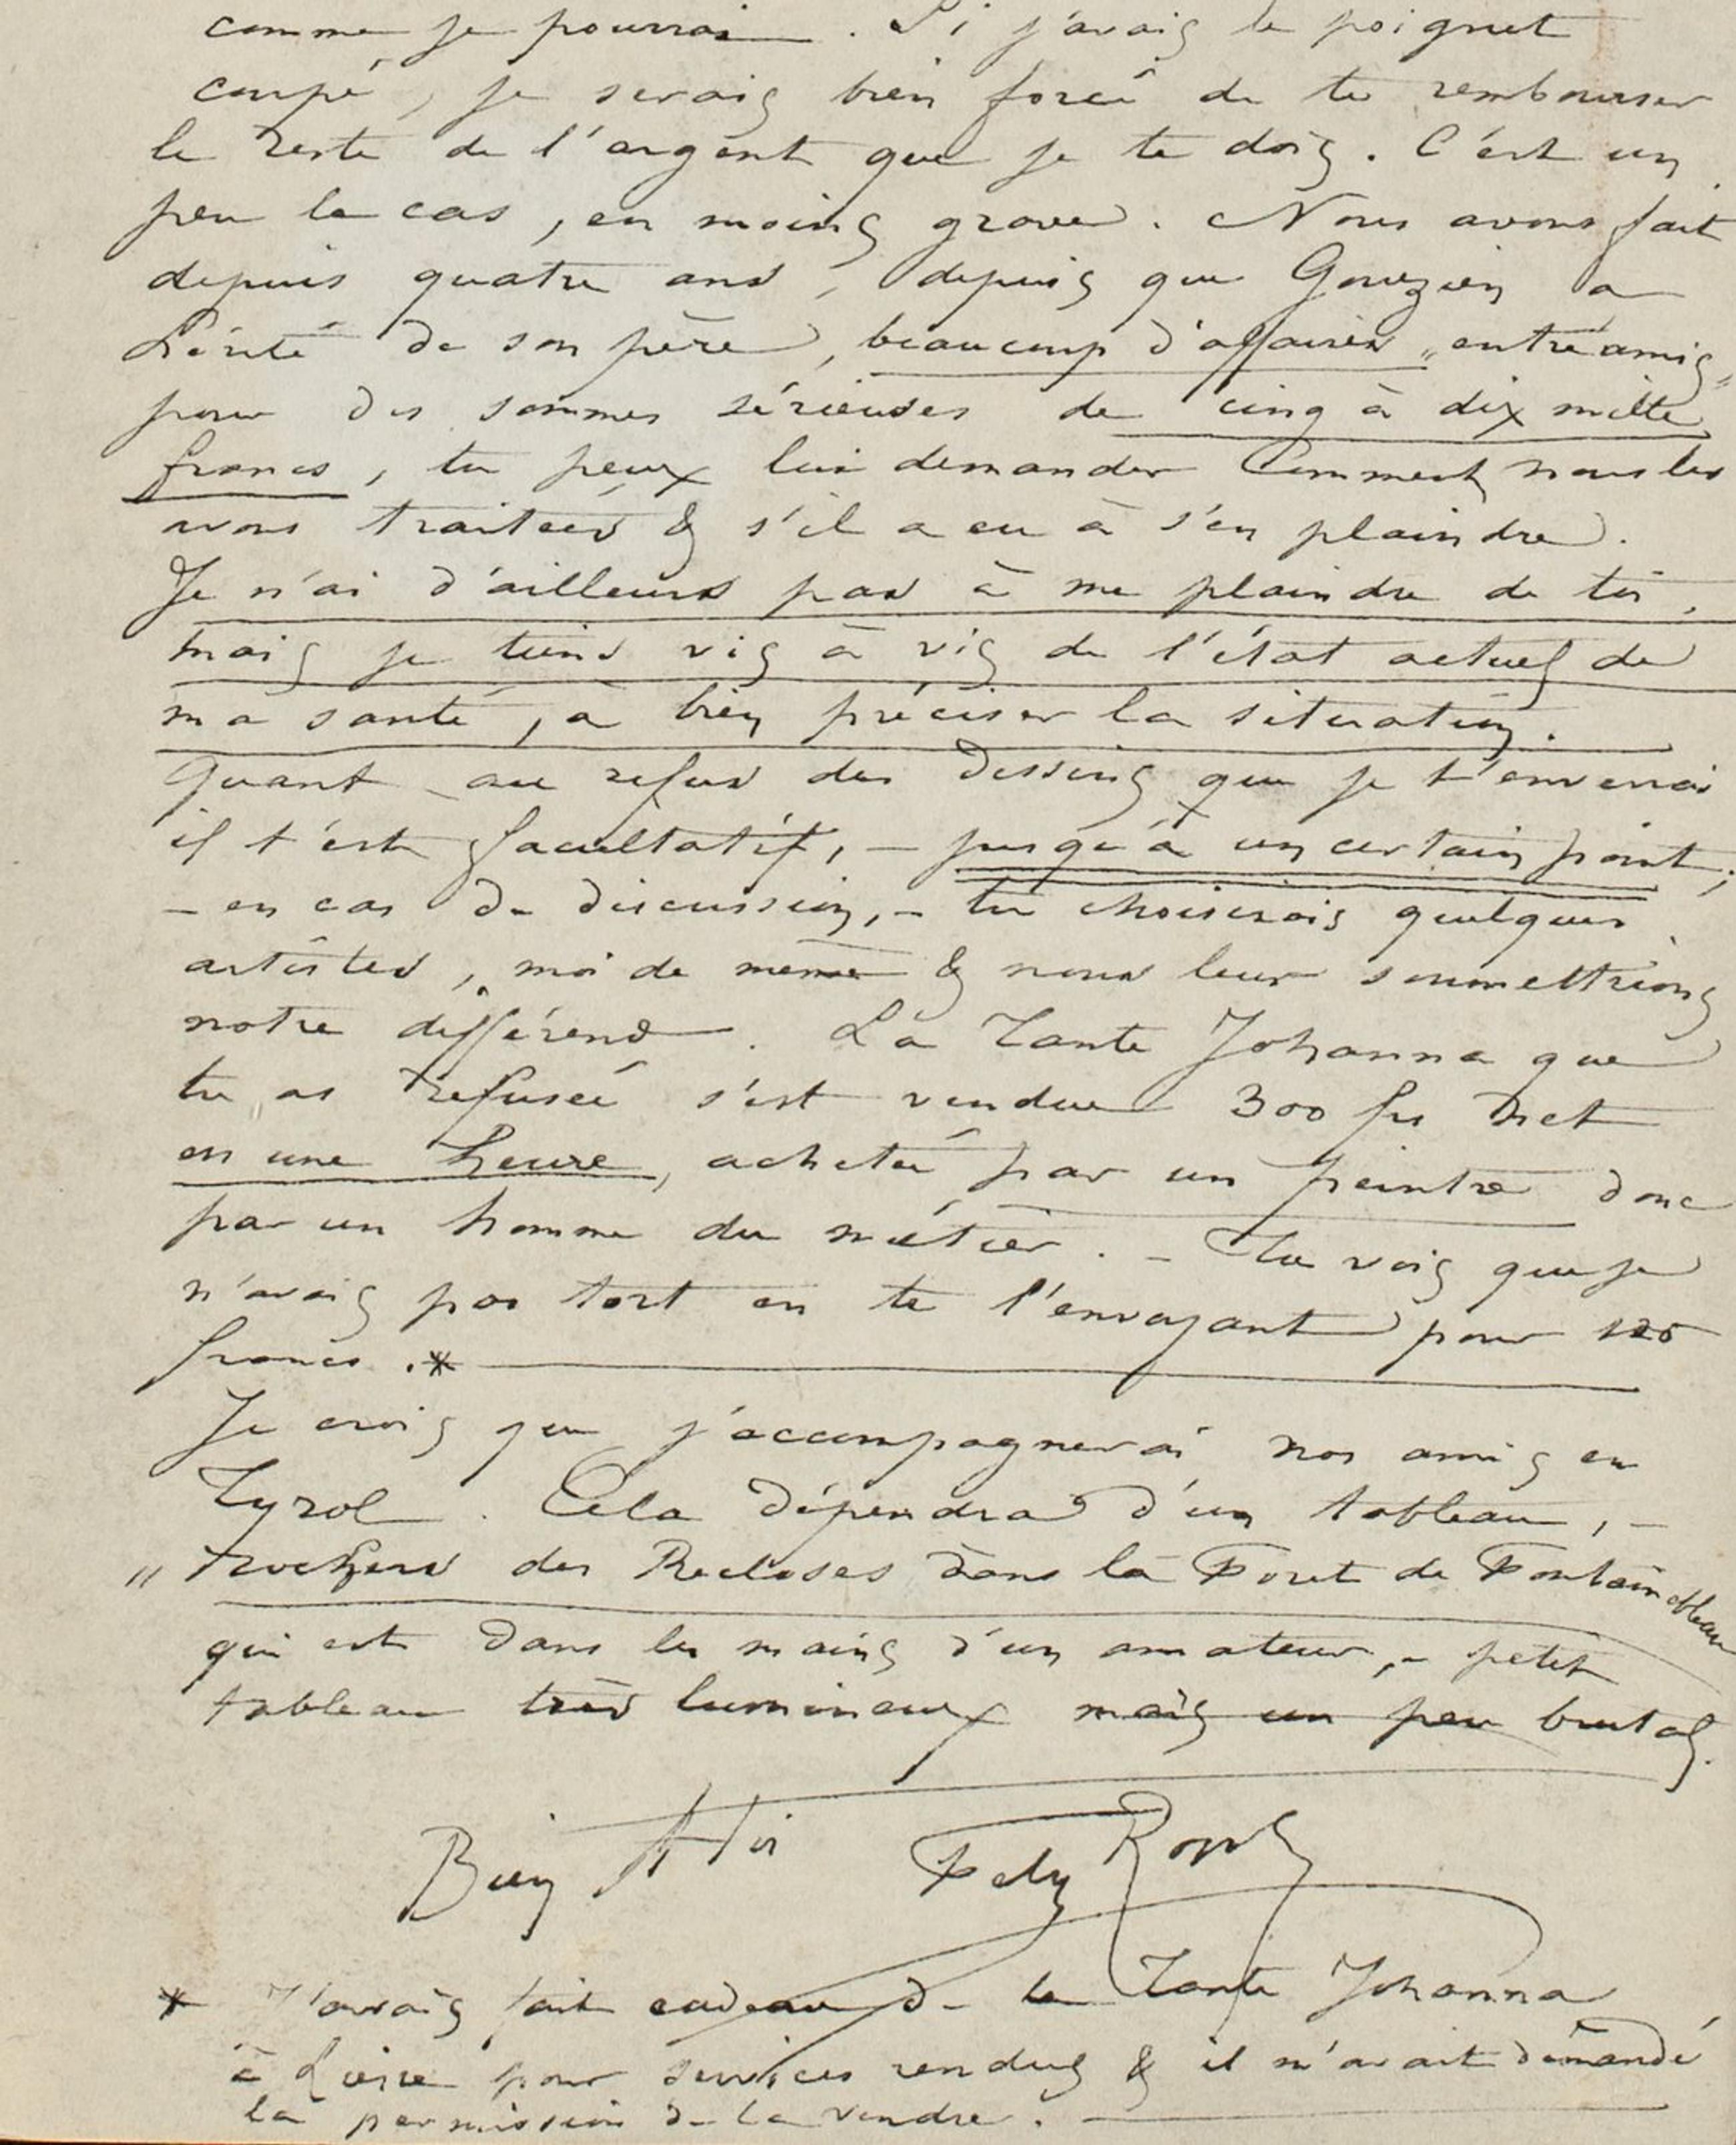 comme je pourrai. Si j'avais le poignet
coupé, je serais bien forcé de te rembourser
le reste de l'argent que je te dois. C'est un
peu le cas, en moins grave. Nous avons fait
depuis quatre ans, depuis que Gouzien a
hérité de son père, beaucoup d'affaires „entre amis"
pour des sommes sérieuses de cinq à dix mille
francs, tu peux lui demander comment nous les
avons traitées & s'il a eu à s'en plaindre.
Je n'ai d'ailleurs pas à me plaindre de toi,
mais je tiens vis à vis de l'état actuel de
ma santé, à bien préciser la situation.
Quant au refus des dessins que je t'enverrai
il t'est facultatif, – jusqu'à un certain point;
– en cas de discussion, – tu choisirais quelques
artistes, moi de même & nous leur soumettrions
notre différend. La Tante Johanna que
tu as refusée s'est vendue 300 frs net
en une heure, achetée par un peintre donc
par un homme du métier. – Tu vois que je
n'avais pas tort en te l'envoyant pour 125
francs.*
Je crois que j'accompagnerai nos amis en
Tyrol. Cela dépendra d'un tableau, –
„Rochers des Recloses dans la Foret de Fontainebleau
qui est dans les mains d'un amateur, – petit
tableau très lumineux mais un peu brutal.
Bien à toi Fély Rops
* J'avais fait cadeau de la Tante Johanna
à Liesse pour services rendus & il m'avait demandé
la permission de la vendre.